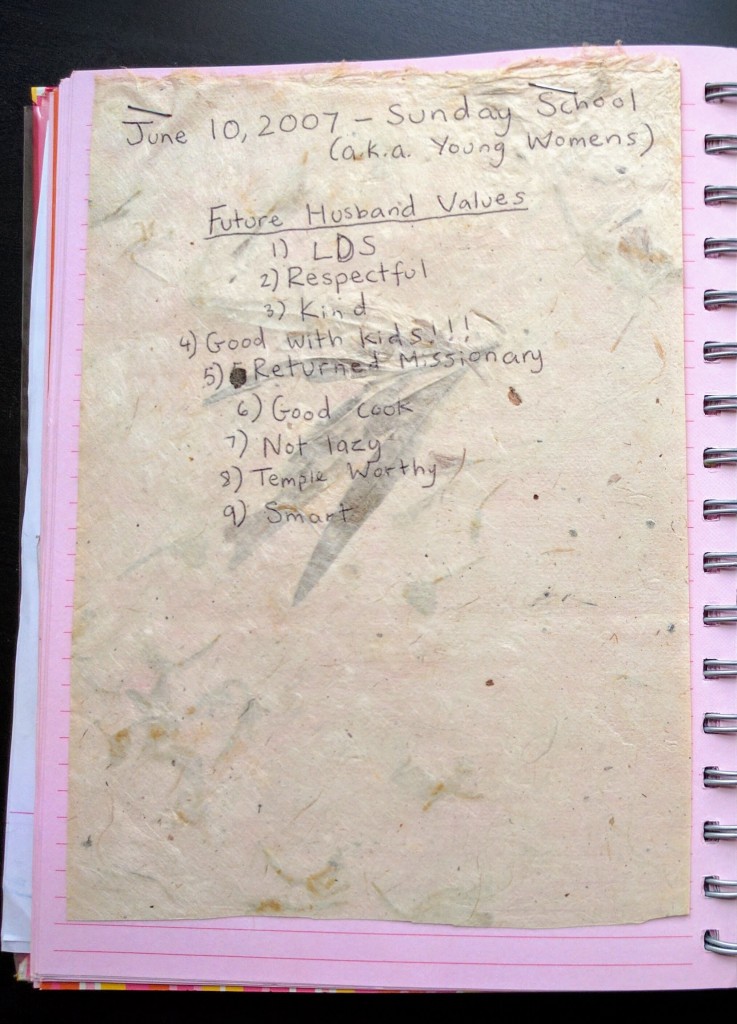 June 10, 2007 - Sunday School
(a.k.a. Young Womens)
Future Husband Values
1) LDS
2) Respectful
3) Kind
4) Good with kids!!!
5) Returned Missionary
6) Good cook
7) Not lazy
8) Temple Worthy
9) Smart